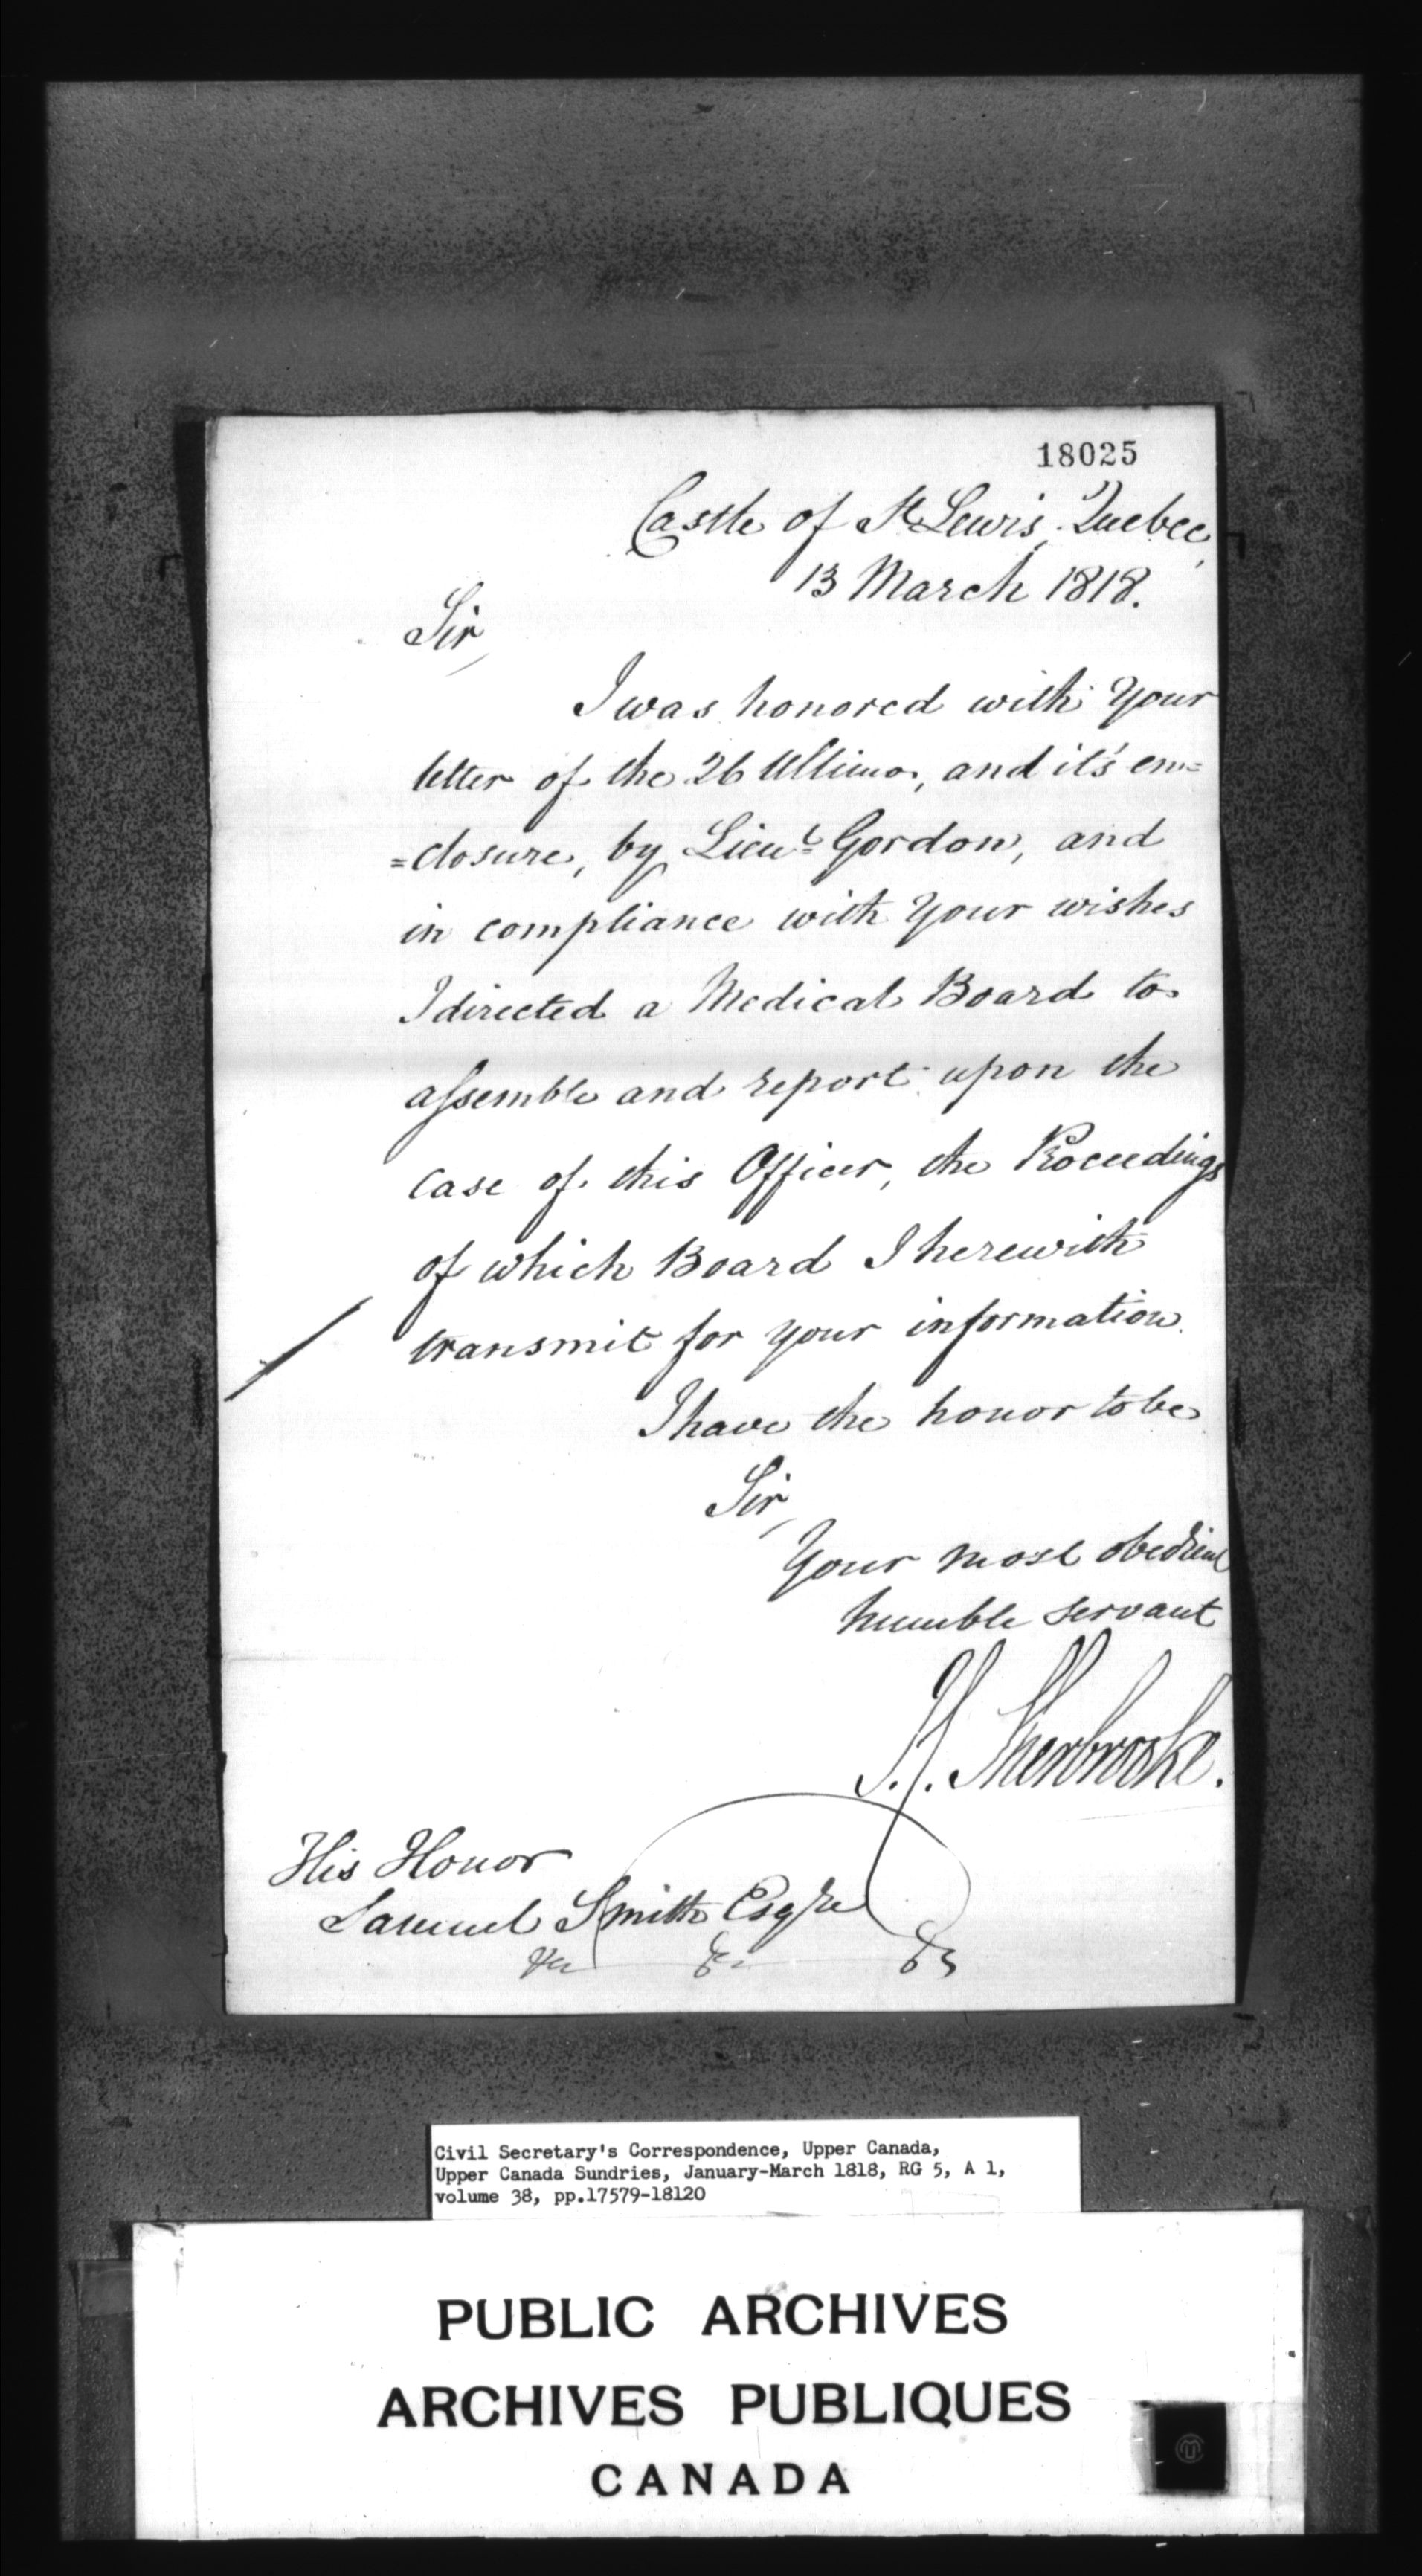 18025
Castle of St Lewis, Quebec,
13 March 1818.
Sir,
I was honored with Your
letter of the 26 Ultimo, and it's en=
=closure, by Lieut Gordon, and
in compliance with Your wishes
I directed a Medical Board to
assemble and report upon the
case of this Officer, the Proceedings
of which Board I herewith
transmit for your information.
I have the honor to be
Sir,
Your most obedient
humble servant
J. Sherbrooke.
His Honor
Samuel Smith Esqre
&c &c &c
Civil Secretary's Correspondence, Upper Canada,
Upper Canada Sundries, January-March 1818, RG 5, A 1,
volume 38, pp.17579-18120
PUBLIC ARCHIVES
ARCHIVES PUBLIQUES
CANADA